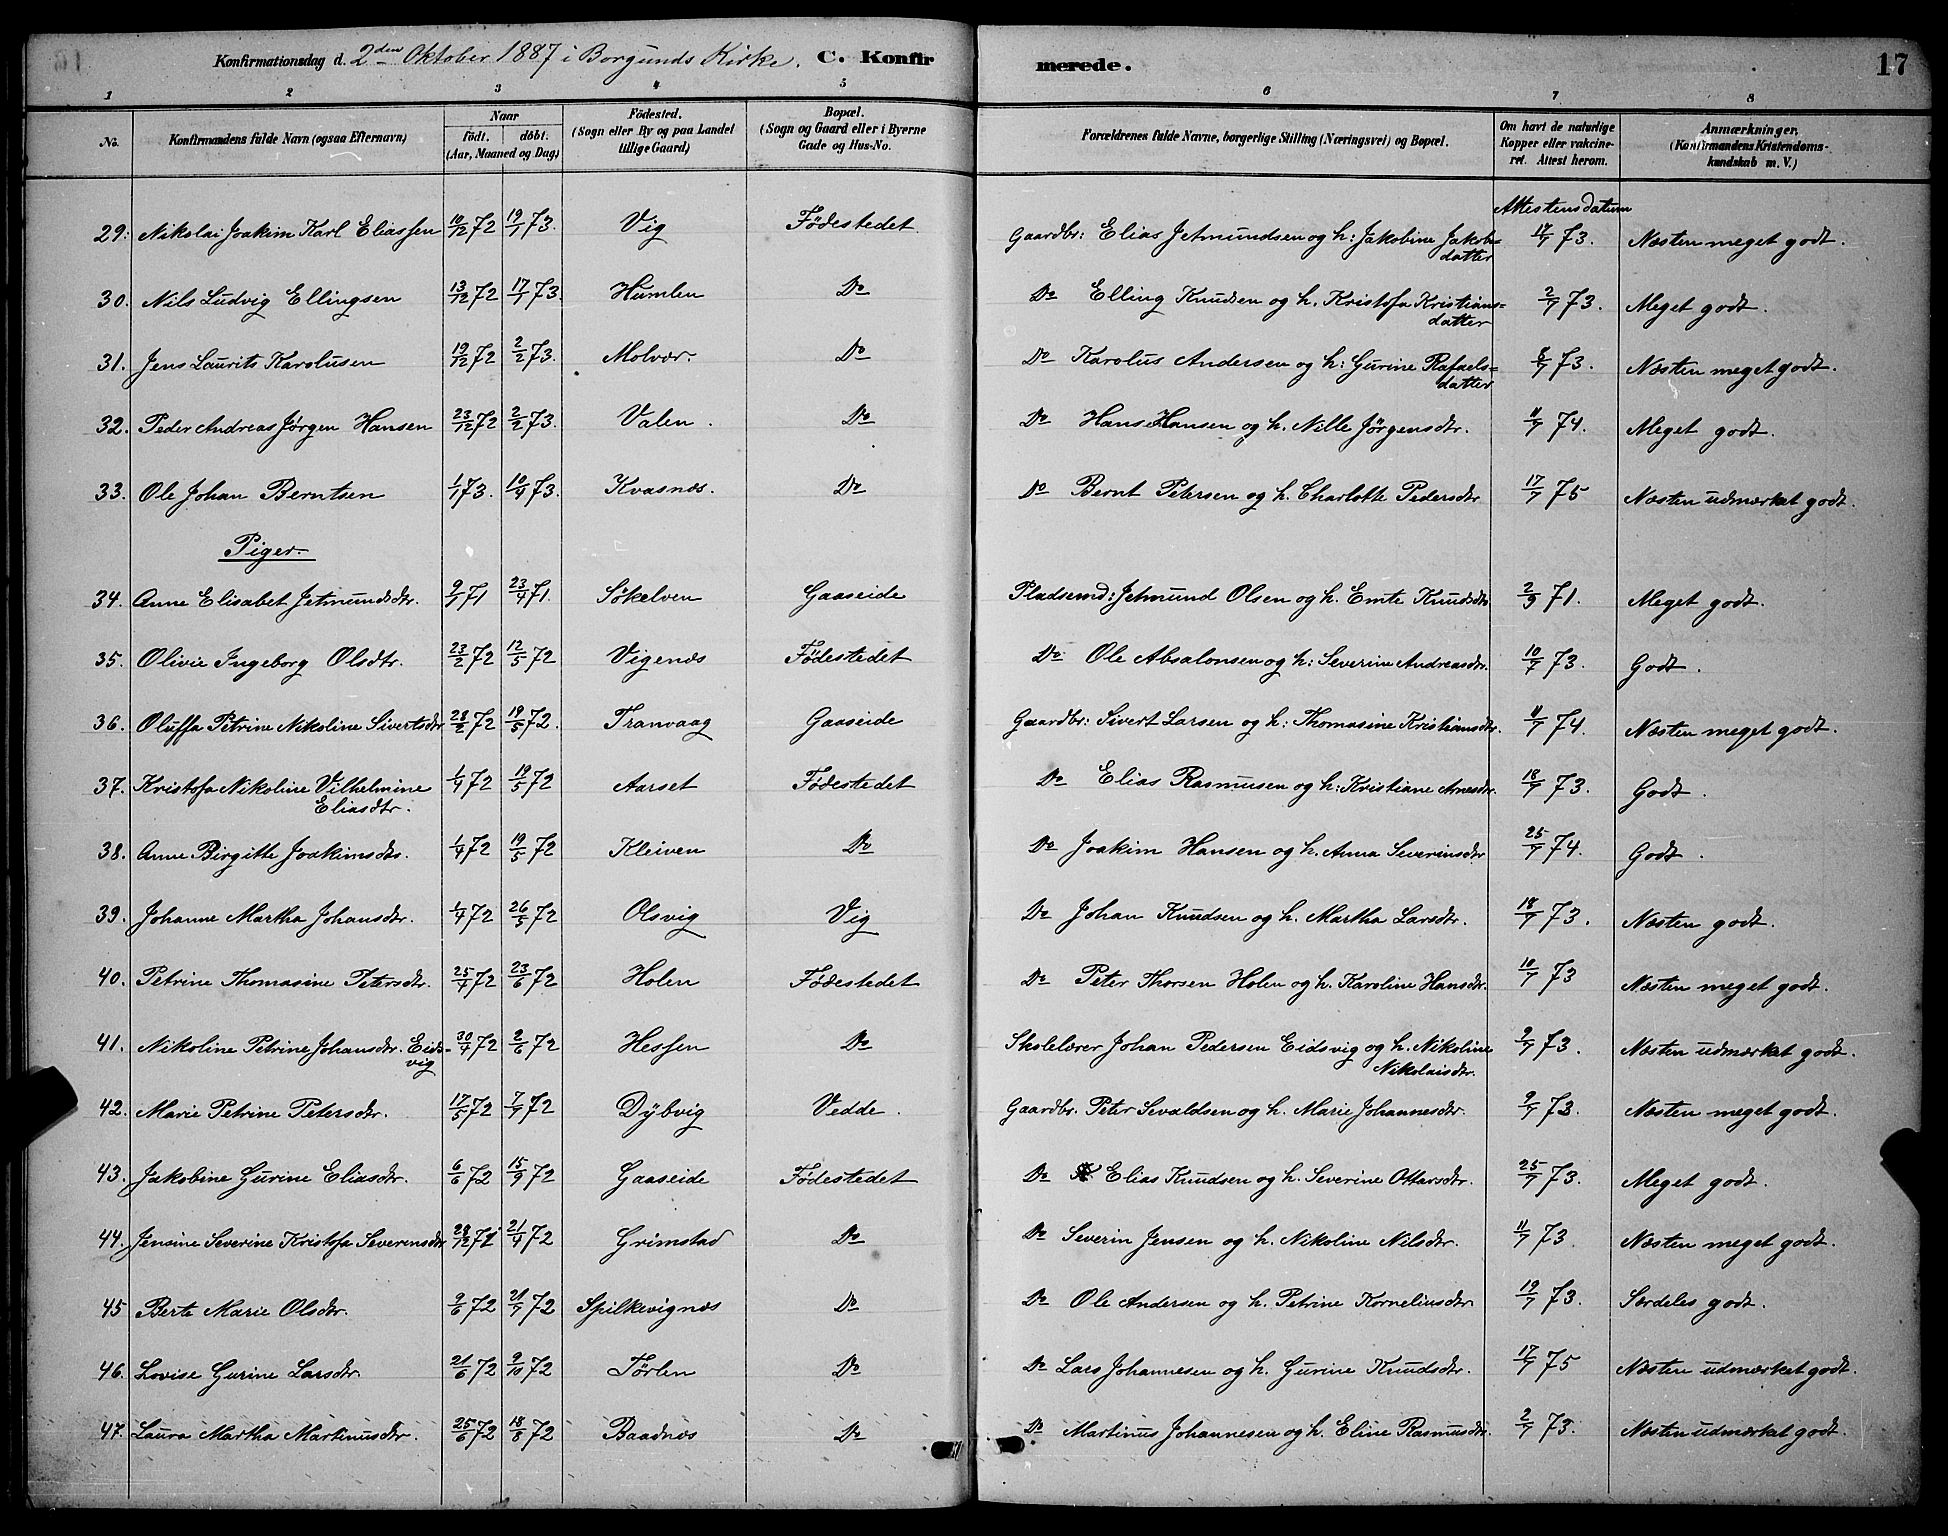 Konfirmationsdag d. 2den Oktober 1887 i Borgunds Kirke. C. Konfirmerede. 17
1 2 3 4 5 6 7 8
No. Konfirmandens fulde Navn (ogsaa Efternavn) Naar födt. döbt. (Aar, Maaned og Dag) Födested. (Sogn eller By og paa Landet tillige Gaard) Bopæl. (Sogn og Gaard eller i Byerne Gade og Hus-No. Forældrenes fulde Navne, borgerlige Stilling (Næringsvei) og Bopæl. Om havt de naturlige Kopper eller vakcineret. Attest herom. Anmærkninger, (Konfirmandens Kristendomskundskab m. V.)
Attestens datum
29. Nikolai Joakim Karl Eliassen 10/12 72 19/1 73. Vig Födestedet Gaardbr: Elias Jetmundsen og h: Jakobine Jakobsdatter 17/7 73. Næsten meget godt.
30. Nils Ludvig Ellingsen 13/12 72 17/1 73. Humlen Do Do Elling Knudsen og h. Kristofa Kristiansdatter 2/7 73. Meget godt.
31. Jens Laurits Karolusen 19/12 72 2/2 73. Molvær. Do Do Karolus Andersen og h: Gurine Rafaelsdatter 8/7 73. Næsten meget godt.
32. Peder Andreas Jørgen Hansen 23/12 72 2/2 73. Valen. Do Do Hans Hansen og h. Nille Jörgensdtr. 11/7 74. Meget godt.
33. Ole Johan Berntsen 1/1 73. 10/4 73. Kvasnæs. Do Do Bernt Petersen og h. Charlotte Pedersdtr 17/7 75 Næsten udmærket godt.
Piger.
34. Anne Elisabet Jetmundsdtr. 9/1 71 23/4 71. Sökelven Gaaseide Pladsemd: Jetmund Olsen og h. Emte Knudsdtr 2/9 71. Meget godt.
35. Olivie Ingeborg Olsdtr. 23/2 72 12/5 72 Vigenæs Födestedet Do Ole Absalonsen og h: Severine Andreasdtr. 10/7 73. Godt.
36. Oluffa Petrine Nikoline Sivertsdtr 28/2 72 19/5 72. Tranvaag Gaaseide Gaardbr: Sivert Larsen og h: Thomasine Kristiansdtr. 11/7 74. Næsten meget godt.
37. Kristofa Nikoline Vilhelmine Eliasdtr. 1/4 72 19/5 72 Aarset Födestedet Do Elias Rasmusen og h: Kristiane Arnesdtr. 18/7 73. Godt.
38. Anne Birgitte Joakimsdtr. 1/4 72 19/5 72 Kleiven Do Do Joakim Hansen og h. Anna Severinsdtr 25/7 74. Godt.
39. Johanne Martha Johansdtr. 1/4 72 26/5 72 Olsvig Vig Do Johan Knudsen og h. Martha Larsdtr. 18/7 73. Næsten godt.
40. Petrine Thomasine Petersdtr. 25/4 72 23/6 72 Holen Födestedet Do Peter Thorsen Holen og h. Karoline Hansdtr. 10/7 73 Næsten meget godt.
41. Nikoline Petrine Johansdtr. Eidsvig 30/4 72 2/6 72 Hessen Do Skolelærer Johan Pedersen Eidsvig og h. Nikoline Nikolaisdtr. 9/7 73. Næsten udmærket godt.
42. Marie Petrine Petersdtr. 17/5 72 7/7 72 Dybvig Vedde. Gaardbr. Peter Sevaldsen og h. Marie Johannesdtr. 9/7 73. Næsten meget godt.
43. Jakobine Gurine Eliasdtr. 6/6 72 15/9 72 Gaaseide Födestedet Do Elias Knudsen og h. Severine Ottarsdtr. 25/7 73. Meget godt.
44. Jensine Severine Kristofa Severinsdtr 28/12 71 21/4 72 Grimstad Do Do Severin Jensen og h. Nikoline Nilsdtr. 11/7 73. Næsten meget godt.
45 Berte Marie Olsdtr. 9/6 72 21/7 72 Spilkevignæs Do Do Ole Andersen og h. Petrine Korneliusdtr 19/7 73. Særdeles godt.
46. Lovise Gurine Larsdtr. 21/6 72 9/10 72 Törlen Do Do Lars Johannesen og h. Gurine Knudsdtr. 17/7 75 Næsten udmærket godt.
47. Laura Martha Martinusdtr. 25/6 72 18/8 72 Baadnæs Do Do Martinus Johannesen og h. Eline Rasmusdtr. 2/7 73. Næsten udmærket godt.